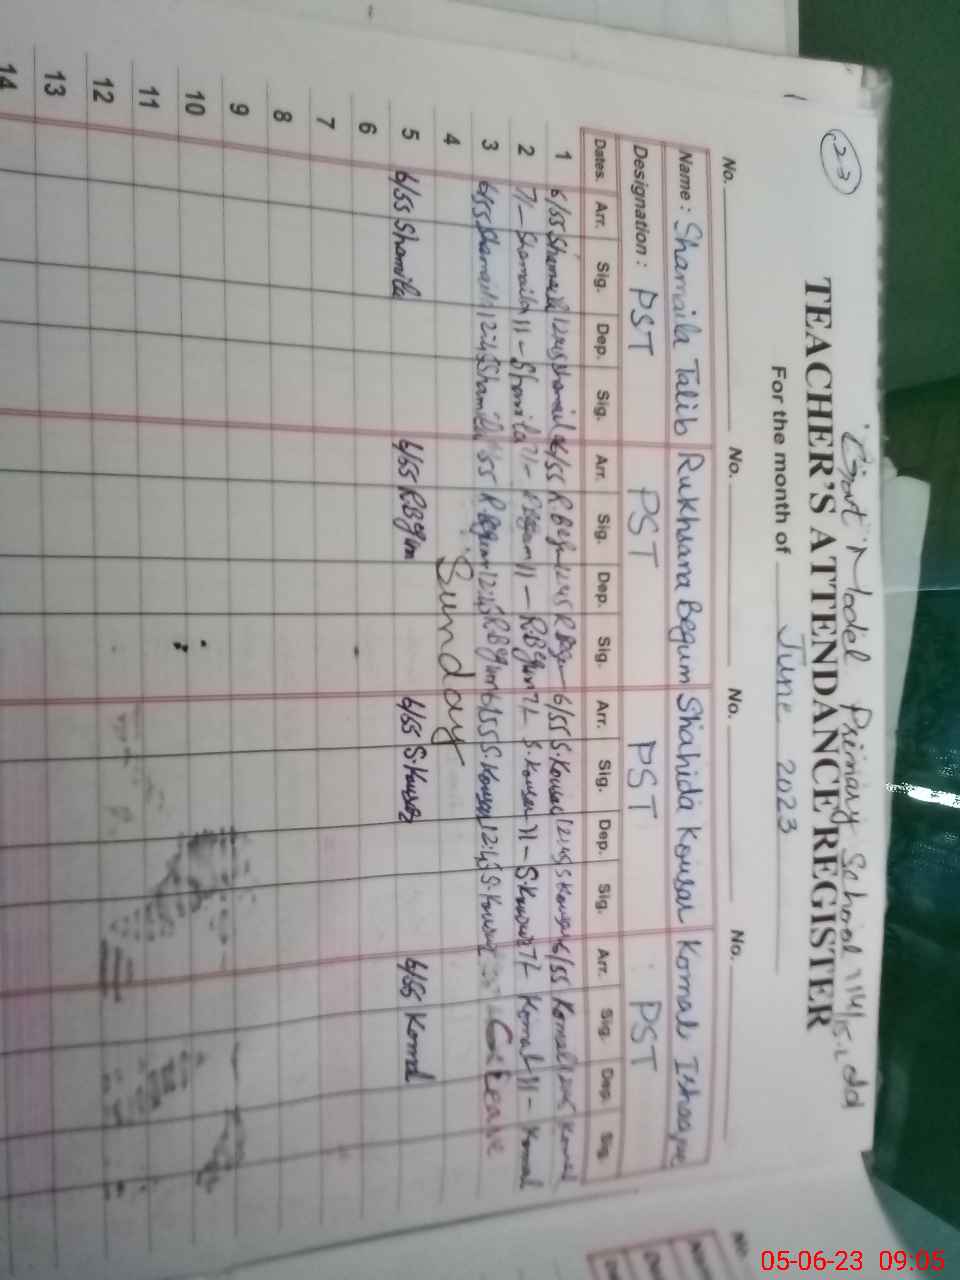 23
Govt Model Primary School 114/15.L old
TEACHER'S ATTENDANCE REGISTER
For the month of June 2023
No. No. No. No. No.
Name: Shamaila Talib Rukhsana Begum Shahida Kousar Komal Ishaque
Designation: PST PST PST PST
Dates. Arr. Sig. Dep. Sig. Arr. Sig. Dep. Sig. Arr. Sig. Dep. Sig. Arr. Sig. Dep. Sig.
1 6/55 12:45 6/55 R Begum 12:45 R Begum 6/55 S.Kousar 12:45 S Kousar 6/55 Komal 12:45 Komal
2 7/- Shamaila 11- Shamaila 7/- R Begum 11- R Begum 7/- S.Kousar 11- S.Kousar 7/- Komal 11- Komal
3 6/55 Shamaila 12:45 Shamaila 6/55 R Begum 12:45 R Begum 6/55 S.Kousar 12:45 S.Kousar Leave
4 Sunday
5 6/55 Shamila 6/55 R Begum 6/55 S.Kousar 6/55 Komal
6
7
8
9
10
11
12
13
14
05-06-23 09:05